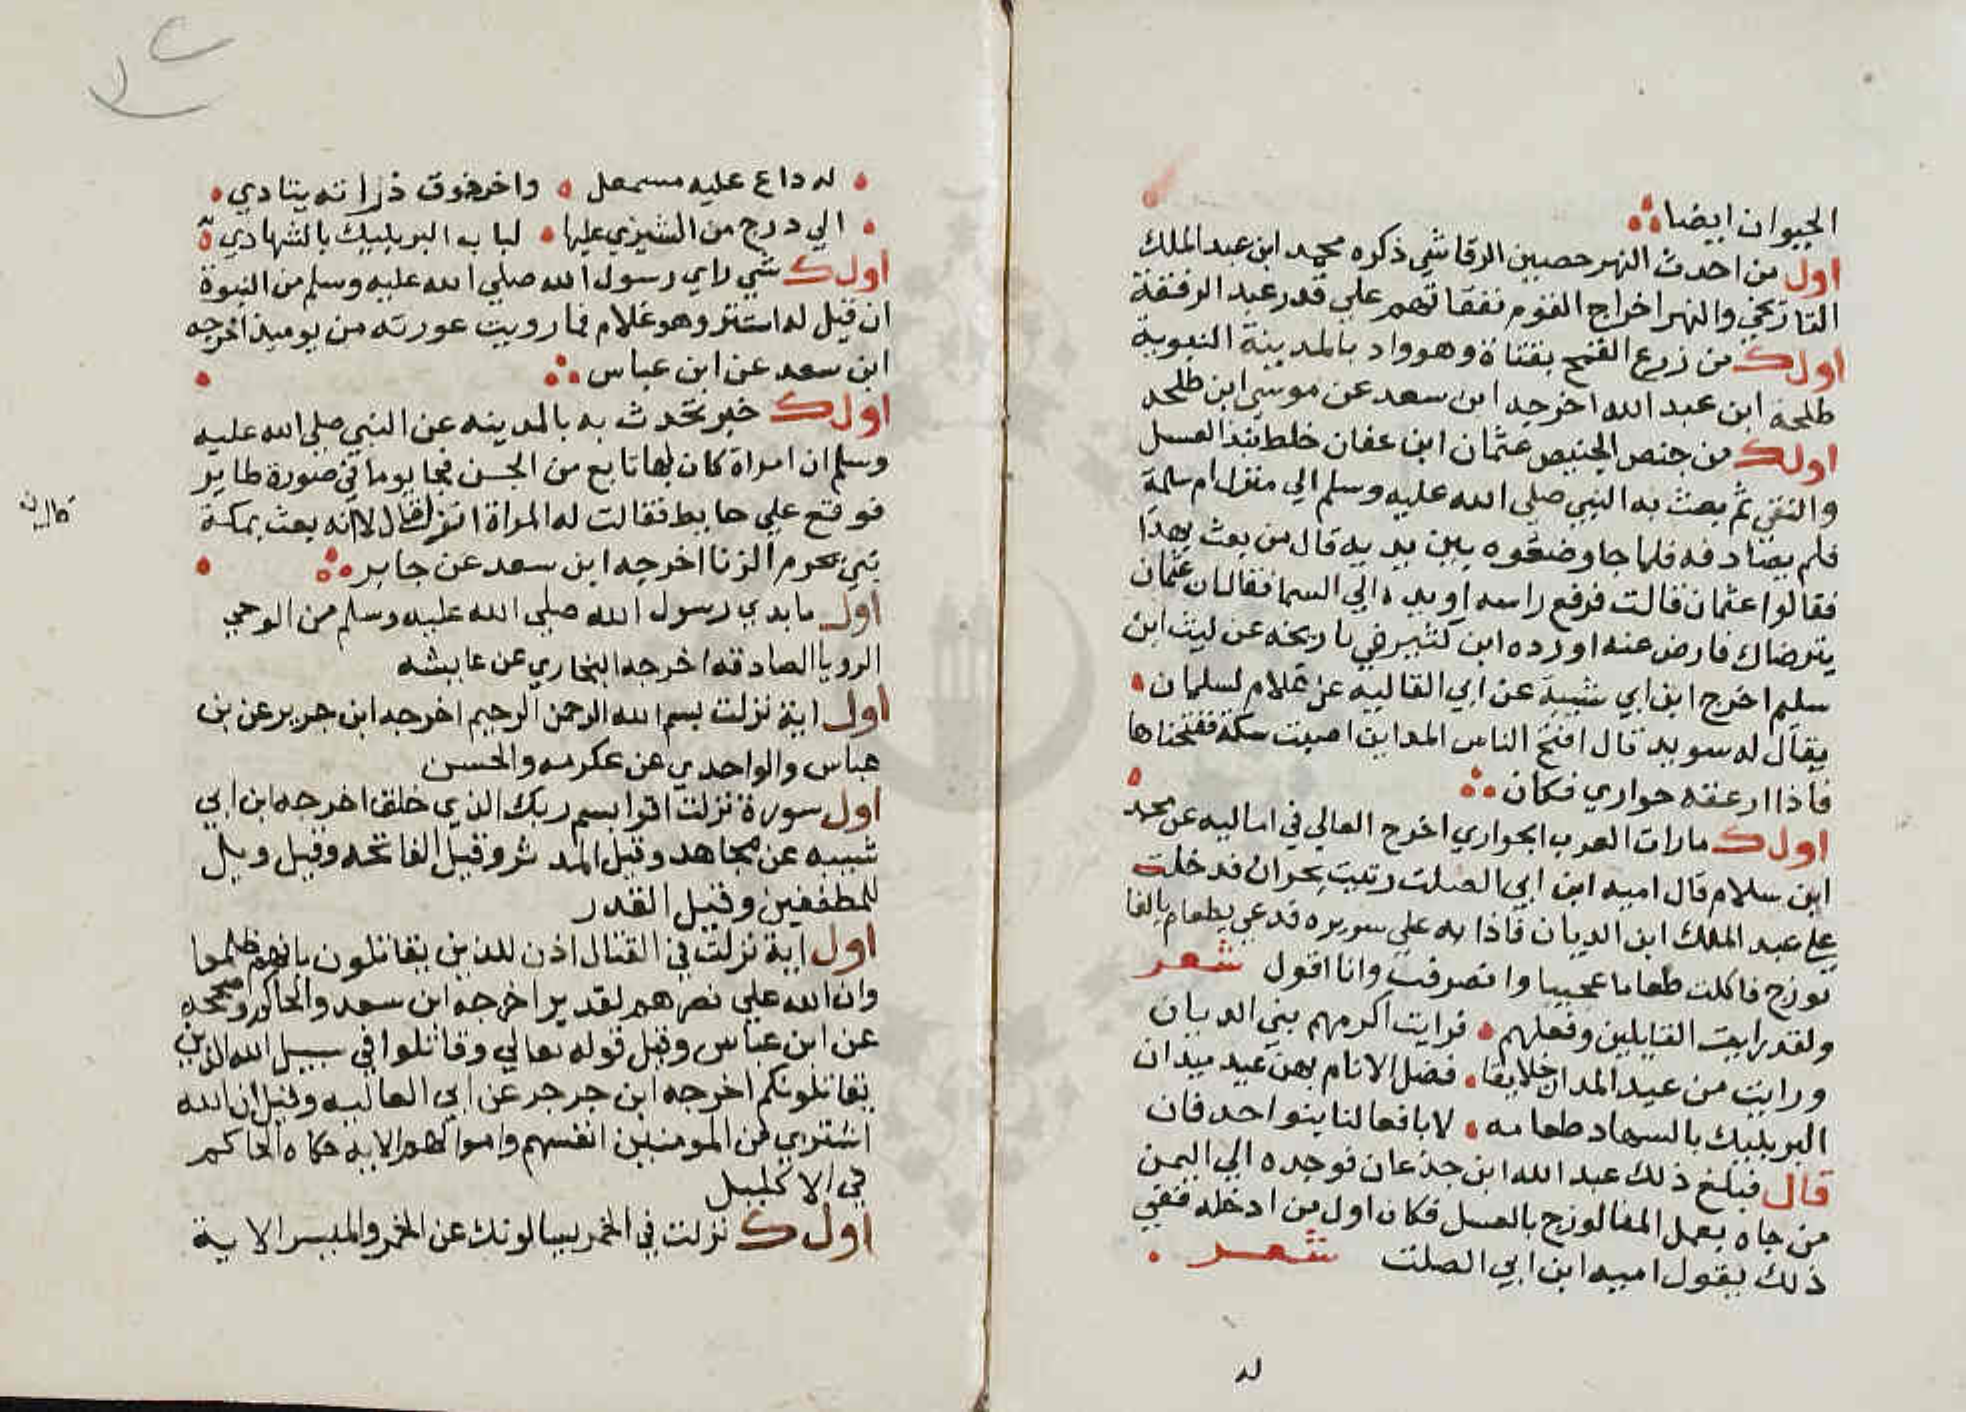 الحيوان ايضا
اول من احدث النهر حصين الرقاشي ذكره محمد ابن عبد الملك
التاريخي والنهر اخراج القوم نفقاتهم على قدر عبد الرفقة
اول من زرع القمح بقناة وهو واد بالمدينة النبوية
طلحة ابن عبد الله اخرجه ابن سعد عن موسى ابن طلحه
اول من خبص الخبيص عثمان ابن عفان خلط بين العسل
والنقي ثم بعث به النبي صلى الله عليه وسلم الي منزل ام سلمة
فلم يصادفه فلما جا وضعوه بين يديه قال من بعث بهذا
فقالوا عثمان قالت فرفع راسه او يده الي السما فقال ان عثمان
يترضاك فارض عنه اورده ابن كثير في تاريخه عن ليث ابن
سليم اخرج ابن ابي شيبة عن ابي العاليه عن غلام لسلمان
يقال له سويد قال افتتح الناس المداين اصبت سكة ففتحناها
فاذا ارغفه حواري فكان
اول ما رات العرب الحواري اخرج القالي في اماليه عن محمد
ابن سلام قال اميه ابن ابي الصلت رتيت بحران فدخلت
علي عبد الملك ابن الديان فاذا به علي سريره فدعي بطعام بالفا
لوزج فاكلت طعاما عجيبا وانصرفت وانا اقول شعر
ولقد رايت القايلين وفعلهم فرايت اكرمهم بني الديان
ورايت من عبد المدان خلايقا فضل الانام بهن عبد ميدان
البر يلبيك بالسهاد طعامه لا بافعالنا بنوا احدفان
قال فبلغ ذلك عبد الله ابن جذعان فوجده الي اليمن
من جاه بعمل الفالوزج بالعسل فكان اول من ادخله ففي
ذلك يقول اميه ابن ابي الصلت شعر
له
له داع عليه مسمعل واخر فوق ذراته ينادي
الي درج من الشيزي عليها لباب البر يلبيك بالشهادي
اول شي راي رسول الله صلي الله عليه وسلم من النبوة
ان قيل له استتر وهو غلام فما رويت عورته من يوميذ اخرجه
ابن سعد عن ابن عباس
اول خبر تحدث به بالمدينه عن النبي صلي الله عليه
وسلم ان امراة كان لها تابع من الجن فجا يوما في صورة طاير
فوقع علي حايط فقالت له المراة انزل قال لا انه بعث بمكة
نبي يحرم الزنا اخرجه ابن سعد عن جابر
اول ما بدي رسول الله صلي الله عليه وسلم من الوحي
الرويا الصادقه اخرجه البخاري عن عايشه
اول اية نزلت بسم الله الرحمن الرحيم اخرجه ابن جرير عن بن
عباس والواحدي عن عكرمه والحسن
اول سورة نزلت اقرا بسم ربك الذي خلق اخرجه ابن ابي
شيبه عن مجاهد وقيل المدثر وقيل الفاتحه وقيل ويل
للمطففين وقيل القدر
اول اية نزلت في القتال اذن للذين يقاتلون بانهم ظلموا
وان الله علي نصرهم لقدير اخرجه ابن سعد والحاكم وصححه
عن ابن عباس وقيل قوله تعالي وقاتلوا في سبيل الله الذين
يقاتلونكم اخرجه ابن جرجر عن ابي العاليه وقيل ان الله
اشتري من المومنين انفسهم واموالهم الايه حكاه الحاكم
في الاكليل
اول نزلت في الخمر يسالونك عن الخمر والميسر الاية